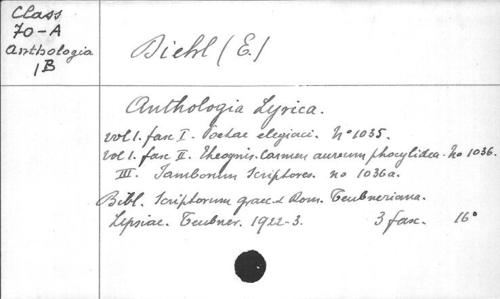 Class
70-A
Anthologia
1B
Diehl (E.)
Anthologia Lyrica.
vol 1. fasc I. Poetae elegiaci. No 1035.
vol 1. fasc II. Theognis. Carmen aureum phocylidea. No 1036.
III. Iamborum Scriptores. no 1036a.
Bibl. Scriptorum graec. & Rom. Teubneriana.
Lipsiae. Teubner. 1922-3. 3 fasc. 16°